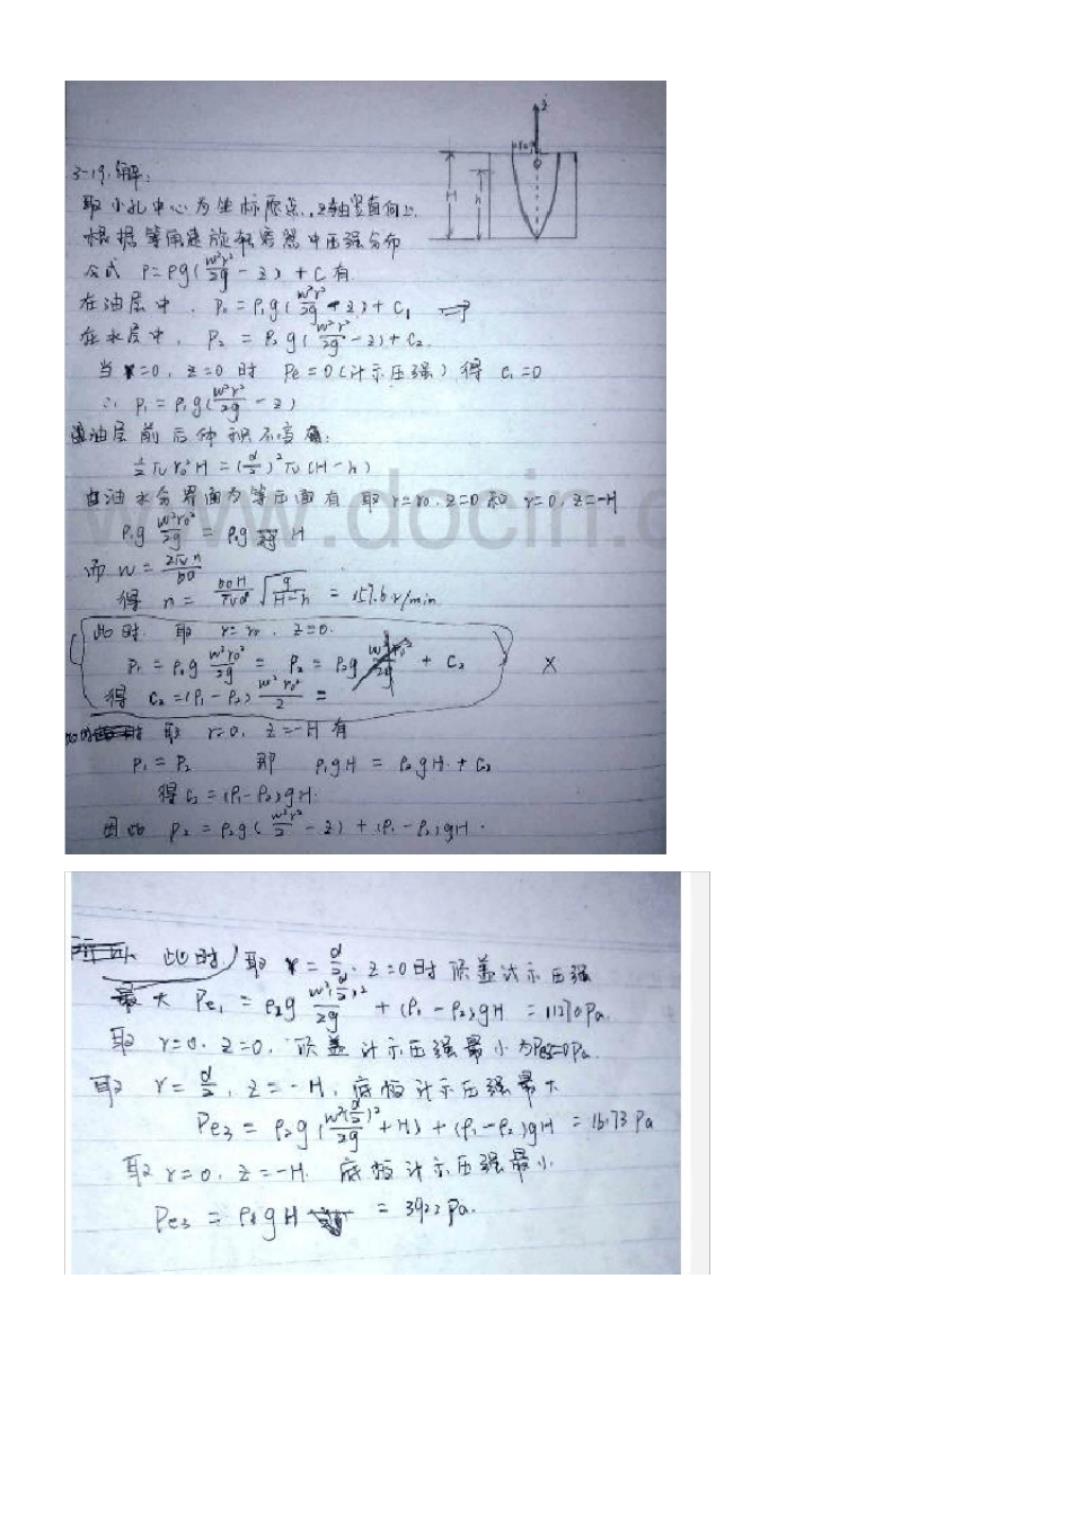 3-19. 解：
取小孔中心为坐标原点，z轴竖直向上.
根据等角速旋转容器中压强分布
公式 P=ρg(w²r²/2g - z) + C 有
在油层中， P₁ = ρ₁g(w²r²/2g - z) + C₁
在水层中， P₂ = ρ₂g(w²r²/2g - z) + C₂.
当 r=0, z=0 时 Pe=0(计示压强) 得 C₁=0
∴ P₁ = ρ₁g(w²r²/2g - z)
油层前后体积不变有:
½πr₀²H = (d/2)²π(H-h)
由油水分界面为等压面有 取 r=r₀, z=0 和 r=0, z=-H
www.docin.c
ρ₁g w²r₀²/2g = ρ₁g H
而 w = 2πn/60
得 n = 60H/πd √(g/(H-h)) = 157.6 r/min
此时. 取 r=r₀, z=0.
P₁ = ρ₁g w²r₀²/2g = P₂ = ρ₂g w²r₀²/2g + C₂
得 C₂ = (ρ₁-ρ₂) w²r₀²/2 =
×
取 r=0, z=-H 有
P₁ = P₂ 即 ρ₁gH = ρ₂gH + C₂
得 C₂ = (ρ₁-ρ₂)gH.
因此 P₂ = ρ₂g(w²r²/2 - z) + (ρ₁-ρ₂)gH.
z
o
H
h
此时 取 r = d/2, z=0时 顶盖计示压强
最大 Pe₁ = ρ₂g w²(d/2)²/2g + (ρ₁-ρ₂)gH = 11270Pa.
取 r=0. z=0, 顶盖计示压强最小为 =0Pa.
取 r = d/2, z=-H, 底板计示压强最大
Pe₃ = ρ₂g(w²(d/2)²/2g + H) + (ρ₁-ρ₂)gH = Pa
取 r=0, z=-H. 底板计示压强最小.
Pe₃ = ρ₁gH = 3922Pa.